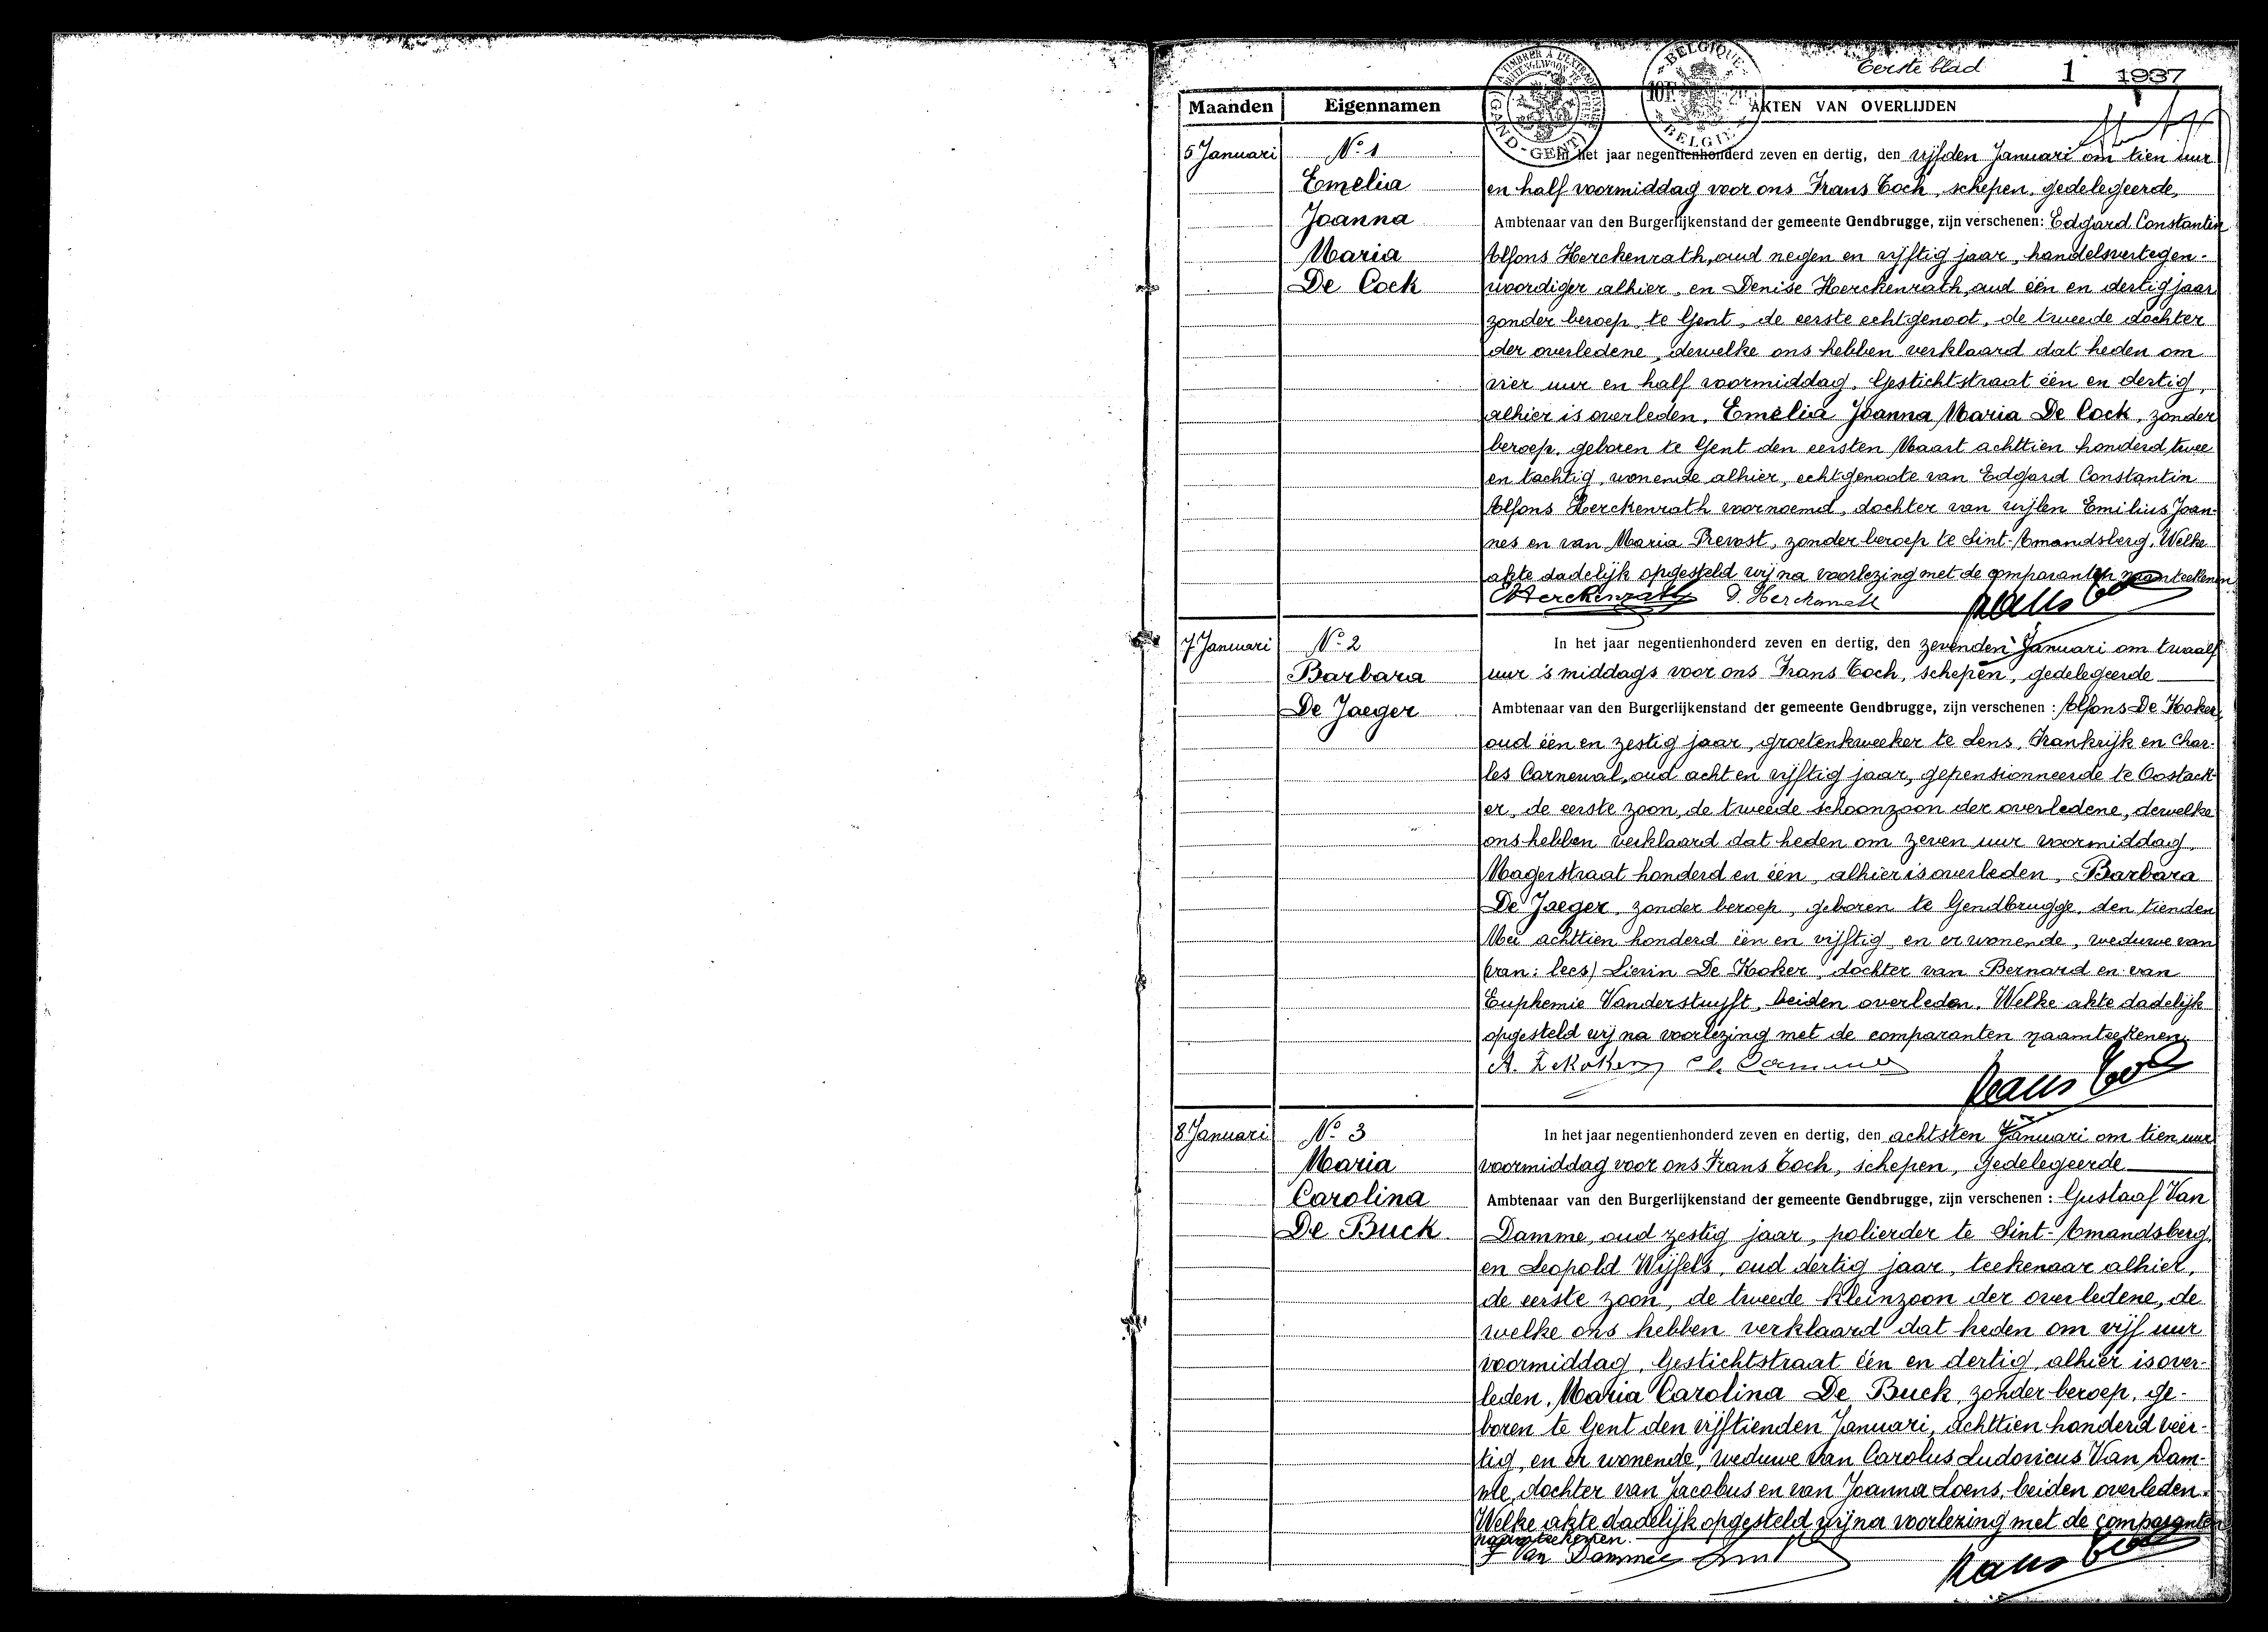 Eerste blad 1 1937
Maanden Eigennamen AKTEN VAN OVERLIJDEN
TIMBRER A L'EXTRAORD
GAND - GENT
BELGIQUE
10F
BELGIE
5 Januari
No 1
Emelia
Joanna
Maria
De Cock
In het jaar negentienhonderd zeven en dertig, den vijfden Januari om tien uur
en half voormiddag voor ons Frans Coch, schepen, gedelegeerde,
Ambtenaar van den Burgerlijkenstand der gemeente Gendbrugge, zijn verschenen: Edgard Constantin
Alfons Herckenrath, oud negen en vijftig jaar, handelsvertegen-
woordiger alhier, en Denise Herckenrath, oud één en dertig jaar
zonder beroep te Gent, de eerste echtgenoot, de tweede dochter
der overledene, dewelke ons hebben verklaard dat heden om
vier uur en half voormiddag, Gestichtstraat één en dertig,
alhier is overleden, Emelia Joanna Maria De Cock, zonder
beroep, geboren te Gent den eersten Maart achttien honderd twee
en tachtig, wonende alhier, echtgenoote van Edgard Constantin
Alfons Herckenrath voornoemd, dochter van wijlen Emilius Joan-
nes en van Maria Prevost, zonder beroep te Sint-Amandsberg. Welke
akte dadelijk opgesteld wij na voorlezing met de comparanten naamteekenen
Herckenrath D. Herckenrath Frans
7 Januari
No 2
Barbara
De Jaeger
In het jaar negentienhonderd zeven en dertig, den zevenden Januari om twaalf
uur 's middags voor ons Frans Coch, schepen, gedelegeerde
Ambtenaar van den Burgerlijkenstand der gemeente Gendbrugge, zijn verschenen: Alfons De Koker,
oud één en zestig jaar, groetenkweeker te Lens, Frankrijk en Char-
les Carnewal, oud acht en vijftig jaar, gepensionneerde te Oostack-
er, de eerste zoon, de tweede schoonzoon der overledene, dewelke
ons hebben verklaard dat heden om zeven uur voormiddag,
Magerstraat honderd en één, alhier is overleden, Barbara
De Jaeger, zonder beroep, geboren te Gendbrugge, den tienden
Mei achttien honderd één en vijftig, en er wonende, weduwe van
(van: lees) Lievin De Koker, dochter van Bernard en van
Euphemie Vanderstuyft, beiden overleden. Welke akte dadelijk
opgesteld wij na voorlezing met de comparanten naamteekenen.
A. Dekoker Ch. Frans
8 Januari
No 3
Maria
Carolina
De Buck
In het jaar negentienhonderd zeven en dertig, den achtsten Januari om tien uur
voormiddag voor ons Frans Coch, schepen, Gedelegeerde
Ambtenaar van den Burgerlijkenstand der gemeente Gendbrugge, zijn verschenen: Gustaaf Van
Damme, oud zestig jaar, polierder te Sint-Amandsberg,
en Leopold Wijfels, oud dertig jaar, teekenaar alhier,
de eerste zoon, de tweede kleinzoon der overledene, de
welke ons hebben verklaard dat heden om vijf uur
voormiddag, Gestichtstraat één en dertig, alhier is over-
leden, Maria Carolina De Buck, zonder beroep, ge-
boren te Gent den vijftienden Januari, achttien honderd veer-
tig, en er wonende, weduwe van Carolus Ludovicus Van Dam-
me, dochter van Jacobus en van Joanna Loens, beiden overleden.
Welke akte dadelijk opgesteld wij na voorlezing met de comparanten
naamteekenen.
Van Damme Frans